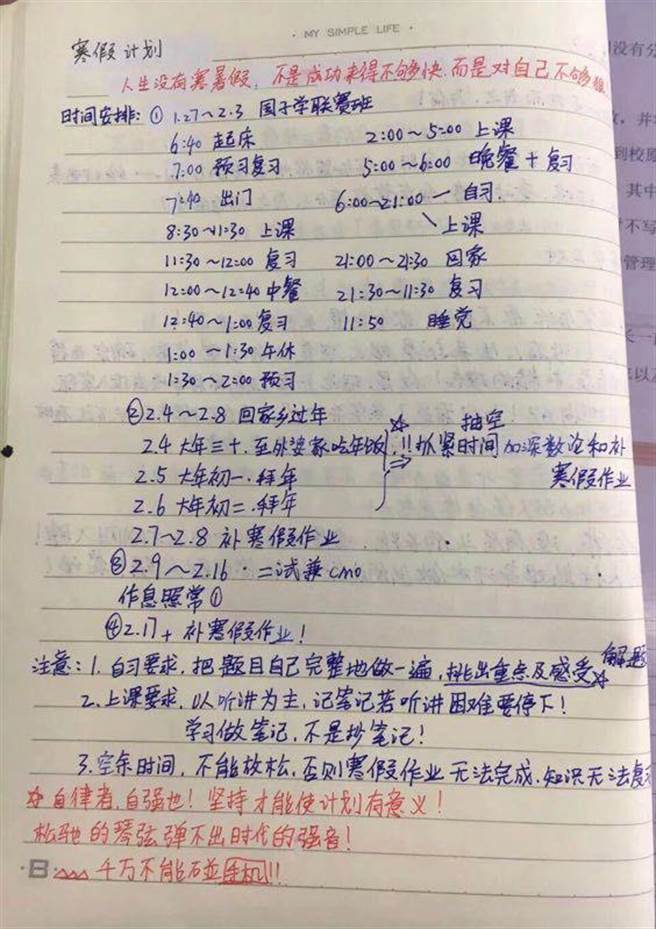 · MY SIMPLE LIFE ·
寒假计划
人生没有寒暑假，不是成功来得不够快.而是对自己不够狠
时间安排: ① 1.27～2.3 国子学联赛班
6:40 起床 2:00～5:00 上课
7:00 预习复习 5:00～6:00 晚餐+复习
7:40 出门 6:00～21:00 一 自习.
8:30～11:30 上课 \ 上课
11:30～12:00 复习 21:00～21:30 回家
12:00～12:40 中餐 21:30～11:30 复习
12:40～1:00 复习 11:50 睡觉
1:00～1:30 午休
1:30～2:00 预习
②2.4～2.8 回家乡过年
2.4 大年三十.至外婆家吃年饭
2.5 大年初一.拜年
2.6 大年初二.拜年
☆ !! 抓紧时间 抽空 加深数论和补
寒假作业
2.7～2.8 补寒假作业
③2.9～2.16 · 二试兼CMO
作息照常①
④2.17+ 补寒假作业!
注意: 1. 自习要求.把题目自己完整地做一遍,挑出重点及感受☆解题
2. 上课要求.以听讲为主,记笔记若听讲困难要停下!
学习做笔记.不是抄笔记!
3.空余时间,不能放松.否则寒假作业无法完成.知识无法复习
☆自律者.自强也! 坚持才能使计划有意义!
松驰的琴弦弹不出时代的强音!
千万不能碰手机!!
没有分
并
到校原
其中
不写
管理